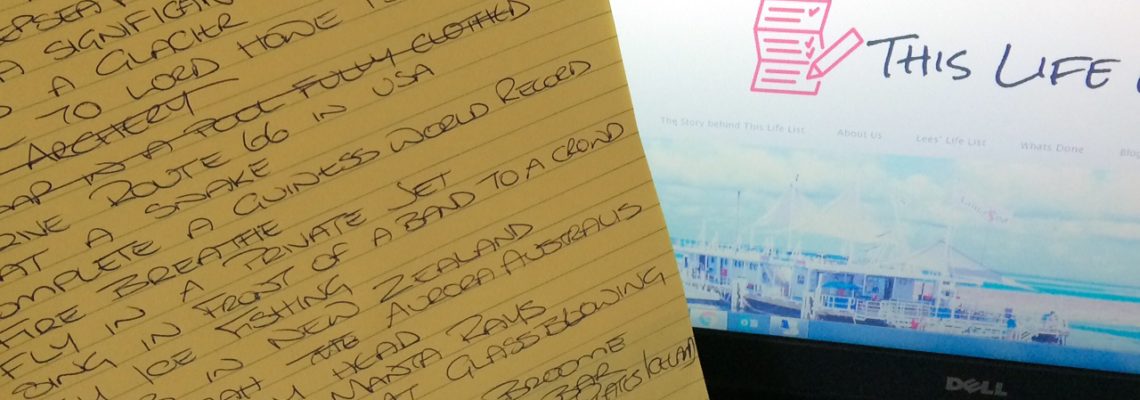 A SIGNIFICAN
A GLACIER
TO LORD HOWE IS
ARCHERY
IN A POOL FULLY CLOTHED
RIVE ROUTE 66 IN USA
AT A SNAKE
OMPLETE A GUINESS WORLD RECORD
FIRE BREATHE
FLY IN A PRIVATE JET
SING IN FRONT OF A BAND TO A CROWD
ICE FISHING
IN NEW ZEALAND
THE AURORA AUSTRALIS
HEAD
MANTA RAYS
AT GLASS BLOWING
BROOME
BAR
THIS LIFE
The Story behind This Life List
About Us
Lees' Life List
Whats Done
Blog
DELL